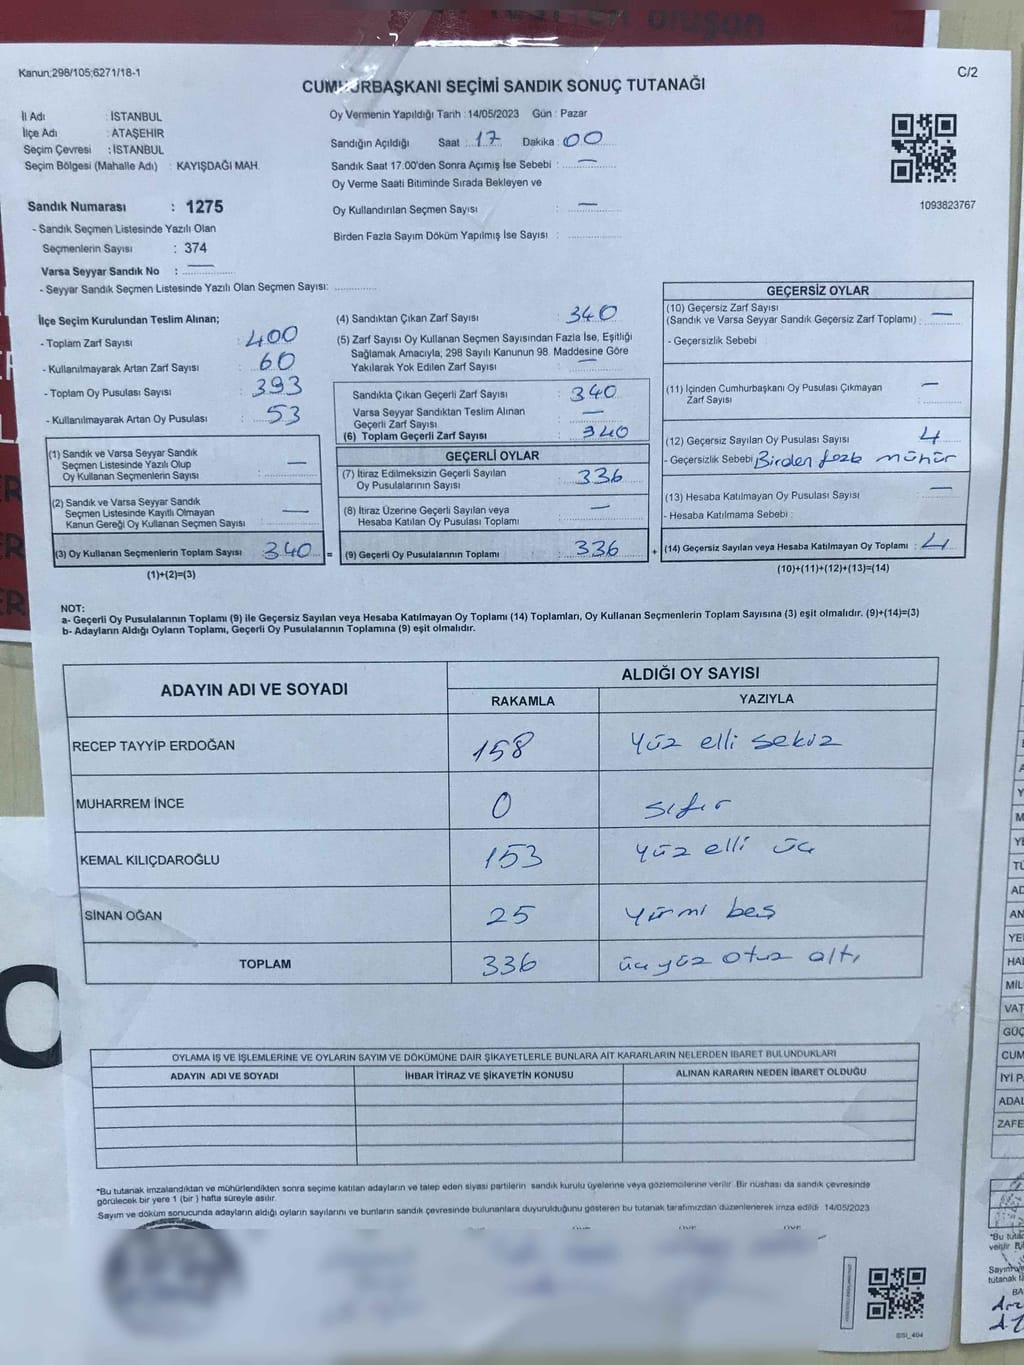 Kanun;298/105;6271/18-1
C/2
CUMHURBAŞKANI SEÇİMİ SANDIK SONUÇ TUTANAĞI
İl Adı : İSTANBUL
İlçe Adı : ATAŞEHİR
Seçim Çevresi : İSTANBUL
Seçim Bölgesi (Mahalle Adı) : KAYIŞDAĞI MAH.
Oy Vermenin Yapıldığı Tarih : 14/05/2023 Gün : Pazar
Sandığın Açıldığı Saat : 17 Dakika : 00
Sandık Saat 17.00'den Sonra Açımış İse Sebebi : —
Oy Verme Saati Bitiminde Sırada Bekleyen ve
Oy Kullandırılan Seçmen Sayısı : —
Birden Fazla Sayım Döküm Yapılmış İse Sayısı :
1093823767
Sandık Numarası : 1275
- Sandık Seçmen Listesinde Yazılı Olan
Seçmenlerin Sayısı : 374
Varsa Seyyar Sandık No : —
- Seyyar Sandık Seçmen Listesinde Yazılı Olan Seçmen Sayısı:
İlçe Seçim Kurulundan Teslim Alınan;
- Toplam Zarf Sayısı : 400
- Kullanılmayarak Artan Zarf Sayısı : 60
- Toplam Oy Pusulası Sayısı : 393
- Kullanılmayarak Artan Oy Pusulası : 53
(1) Sandık ve Varsa Seyyar Sandık
Seçmen Listesinde Yazılı Olup
Oy Kullanan Seçmenlerin Sayısı : —
(2) Sandık ve Varsa Seyyar Sandık
Seçmen Listesinde Kayıtlı Olmayan
Kanun Gereği Oy Kullanan Seçmen Sayısı : —
(3) Oy Kullanan Seçmenlerin Toplam Sayısı 340 =
(1)+(2)=(3)
(4) Sandıktan Çıkan Zarf Sayısı : 340
(5) Zarf Sayısı Oy Kullanan Seçmen Sayısından Fazla İse, Eşitliği
Sağlamak Amacıyla; 298 Sayılı Kanunun 98. Maddesine Göre
Yakılarak Yok Edilen Zarf Sayısı : —
Sandıkta Çıkan Geçerli Zarf Sayısı : 340
Varsa Seyyar Sandıktan Teslim Alınan
Geçerli Zarf Sayısı : —
(6) Toplam Geçerli Zarf Sayısı : 340
GEÇERLİ OYLAR
(7) İtiraz Edilmeksizin Geçerli Sayılan
Oy Pusulalarının Sayısı : 336
(8) İtiraz Üzerine Geçerli Sayılan veya
Hesaba Katılan Oy Pusulası Toplamı : —
(9) Geçerli Oy Pusulalarının Toplamı : 336 +
GEÇERSİZ OYLAR
(10) Geçersiz Zarf Sayısı
(Sandık ve Varsa Seyyar Sandık Geçersiz Zarf Toplamı) : —
- Geçersizlik Sebebi :
(11) İçinden Cumhurbaşkanı Oy Pusulası Çıkmayan
Zarf Sayısı : —
(12) Geçersiz Sayılan Oy Pusulası Sayısı : 4
- Geçersizlik Sebebi Birden fazla mühür
(13) Hesaba Katılmayan Oy Pusulası Sayısı : —
- Hesaba Katılmama Sebebi :
(14) Geçersiz Sayılan veya Hesaba Katılmayan Oy Toplamı : 4
(10)+(11)+(12)+(13)=(14)
NOT:
a- Geçerli Oy Pusulalarının Toplamı (9) ile Geçersiz Sayılan veya Hesaba Katılmayan Oy Toplamı (14) Toplamları, Oy Kullanan Seçmenlerin Toplam Sayısına (3) eşit olmalıdır. (9)+(14)=(3)
b- Adayların Aldığı Oyların Toplamı, Geçerli Oy Pusulalarının Toplamına (9) eşit olmalıdır.
ADAYIN ADI VE SOYADI
ALDIĞI OY SAYISI
RAKAMLA YAZIYLA
RECEP TAYYİP ERDOĞAN 158 Yüz elli sekiz
MUHARREM İNCE 0 sıfır
KEMAL KILIÇDAROĞLU 153 yüz elli üç
SİNAN OĞAN 25 yirmi beş
TOPLAM 336 üçyüz otuz altı
OYLAMA İŞ VE İŞLEMLERİNE VE OYLARIN SAYIM VE DÖKÜMÜNE DAİR ŞİKAYETLERLE BUNLARA AİT KARARLARIN NELERDEN İBARET BULUNDUKLARI
ADAYIN ADI VE SOYADI İHBAR İTİRAZ VE ŞİKAYETİN KONUSU ALINAN KARARIN NEDEN İBARET OLDUĞU
*Bu tutanak imzalandıktan ve mühürlendikten sonra seçime katılan adayların ve talep eden siyasi partilerin sandık kurulu üyelerine veya gözlemcilerine verilir. Bir nüshası da sandık çevresinde
görülecek bir yere 1 (bir) hafta süreyle asılır.
Sayım ve döküm sonucunda adayların aldığı oyların sayılarını ve bunların sandık çevresinde bulunanlara duyurulduğunu gösteren bu tutanak tarafımızdan düzenlenerek imza edildi. 14/05/2023